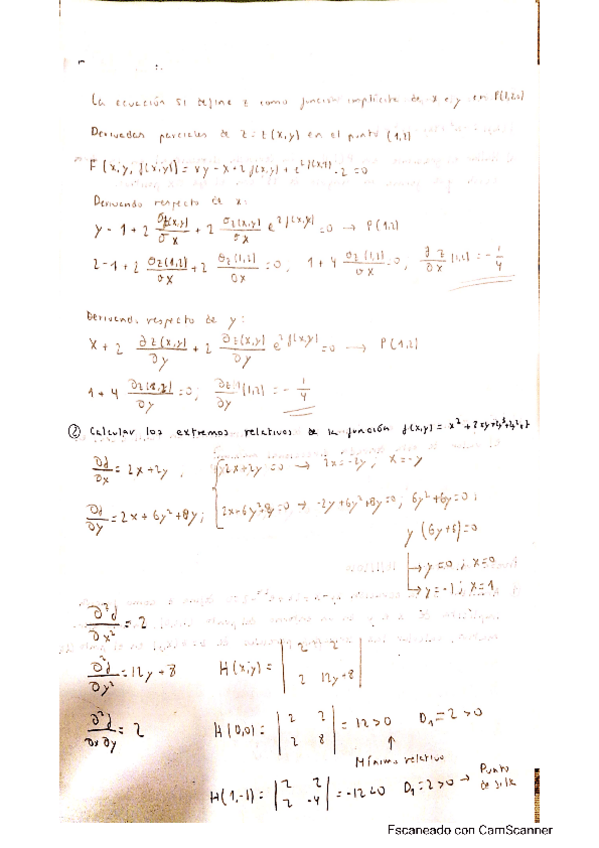 La ecuación si define z como función implícita de x e y en P(1,2,0)
Derivadas parciales de z = z(x,y) en el punto (1,2)
F(x,y, f(x,y)) = xy - x + 2 f(x,y) + e^{2f(x,y)} - 2 = 0
Derivando respecto de x:
y - 1 + 2 ∂z(x,y)/∂x + 2 ∂z(x,y)/∂x e^{2f(x,y)} = 0 → P(1,2)
2 - 1 + 2 ∂z(1,2)/∂x + 2 ∂z(1,2)/∂x = 0, 1 + 4 ∂z(1,2)/∂x = 0, ∂z/∂x (1,2) = -1/4
Derivando respecto de y:
x + 2 ∂z(x,y)/∂y + 2 ∂z(x,y)/∂y e^{2f(x,y)} = 0 → P(1,2)
1 + 4 ∂z(1,2)/∂y = 0; ∂z/∂y (1,2) = -1/4
② Calcular los extremos relativos de la función f(x,y) = x² + 2xy +
∂f/∂x = 2x + 2y, 2x + 2y = 0 → 2x = -2y; x = -y
∂f/∂y = 2x + 6y² + 8y; 2x + 6y² + 8y = 0 → -2y + 6y² + 8y = 0; 6y² + 6y = 0;
y (6y + 6) = 0
→ y = 0; x = 0
→ y = -1; x = 1
∂²f/∂x² = 2
∂²f/∂y² = 12y + 8 H(x,y) = | 2 2 ; 2 12y+8 |
∂²f/∂x∂y = 2 H(0,0) = | 2 2 ; 2 8 | = 12 > 0 D₁ = 2 > 0
↑
Mínimo relativo
H(1,-1) = | 2 2 ; 2 -4 | = -12 < 0 D₁ = 2 > 0 → Punto de silla
Escaneado con CamScanner